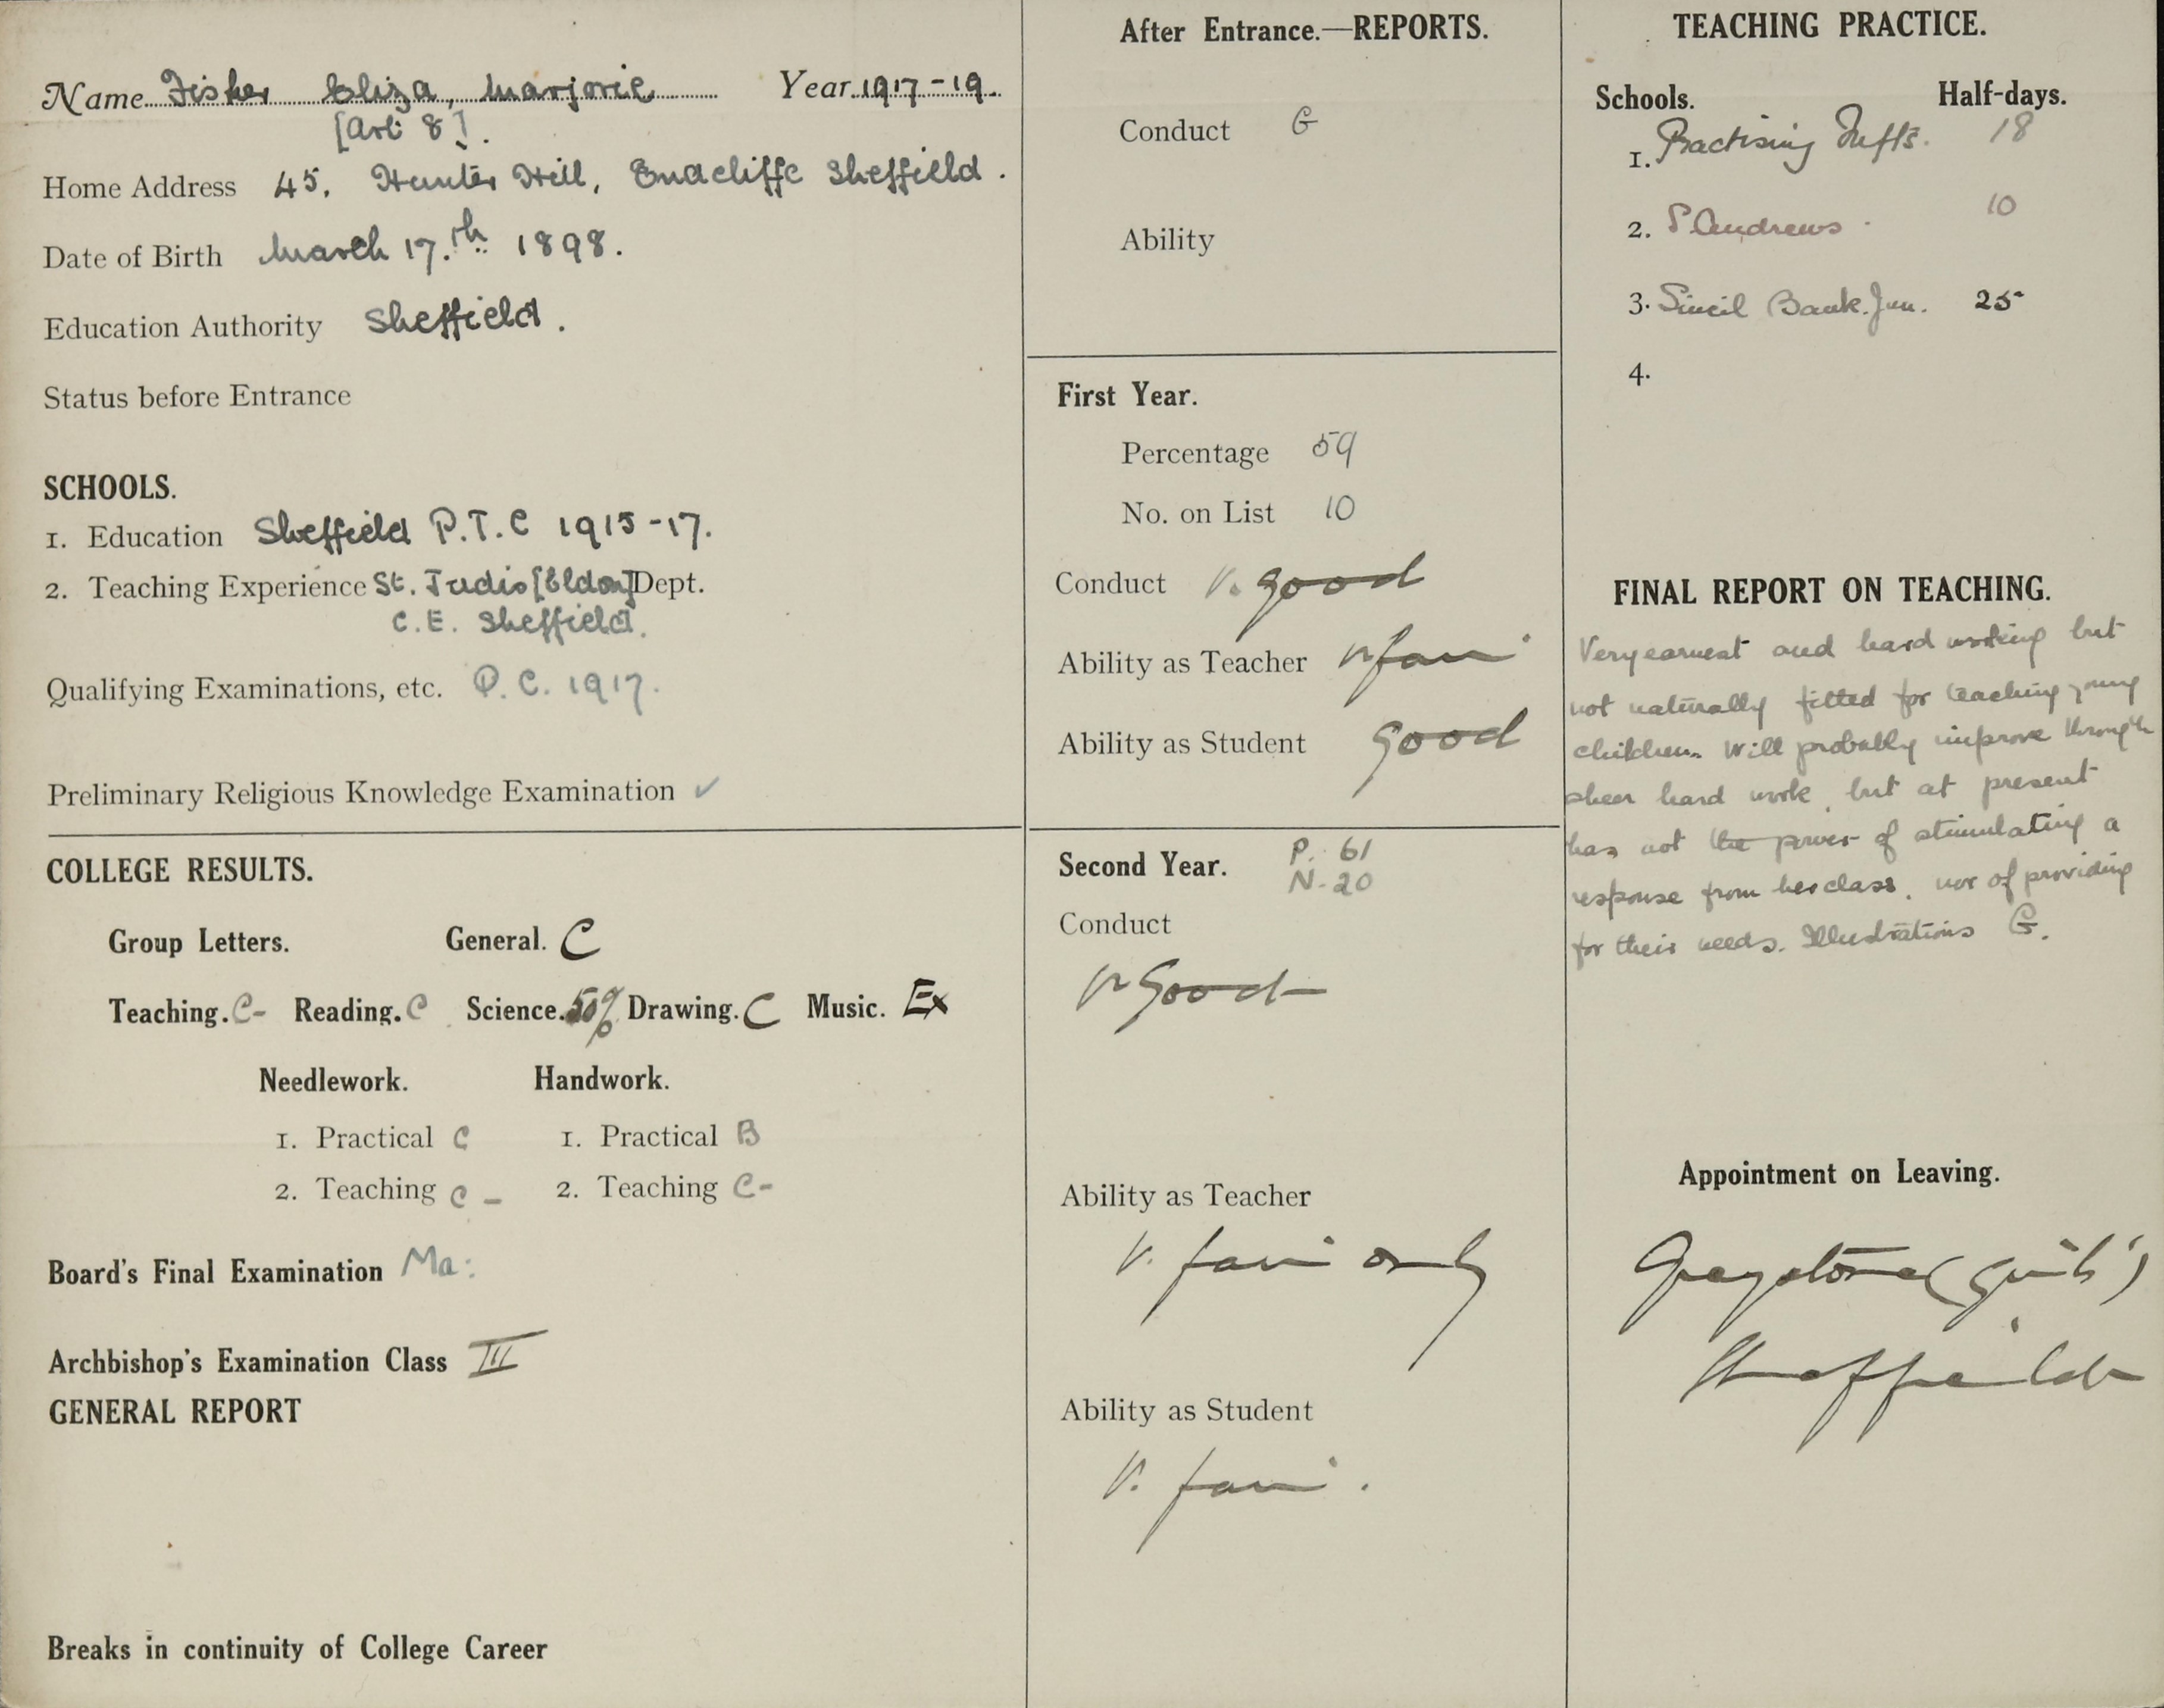 Name Fisher Eliza, Marjorie Year 1917-19.
[Art: 8].
Home Address 45, Hunter Hill, Endcliffe Sheffield.
Date of Birth March 17.th 1898.
Education Authority Sheffield.
Status before Entrance
SCHOOLS.
1. Education Sheffield P.T.C 1915-17.
2. Teaching Experience St. Judis [Eldon] Dept.
C.E. Sheffield.
Qualifying Examinations, etc. P.C. 1917.
Preliminary Religious Knowledge Examination ✓
COLLEGE RESULTS.
Group Letters. General. C
Teaching. C- Reading. C Science. 50% Drawing. C Music. Ex
Needlework. Handwork.
1. Practical C 1. Practical B
2. Teaching C- 2. Teaching C-
Board's Final Examination Ma:
Archbishop's Examination Class III
GENERAL REPORT
Breaks in continuity of College Career
After Entrance.—REPORTS.
Conduct G
Ability
First Year.
Percentage 59
No. on List 10
Conduct V. good
Ability as Teacher V fair
Ability as Student good
Second Year. P. 61
N-20
Conduct
V Good
Ability as Teacher
V. fair only
Ability as Student
V. fair.
TEACHING PRACTICE.
Schools. Half-days.
1. Practising Infts. 18
2. S. Andrews. 10
3. Sincil Bank. Jun. 25
4.
FINAL REPORT ON TEACHING.
Very earnest and hard working but
not naturally fitted for teaching young
children. Will probably improve through
sheer hard work, but at present
has not the power of stimulating a
response from her class, nor of providing
for their needs. Illustrations G.
Appointment on Leaving.
Greystones (Girls')
Sheffield